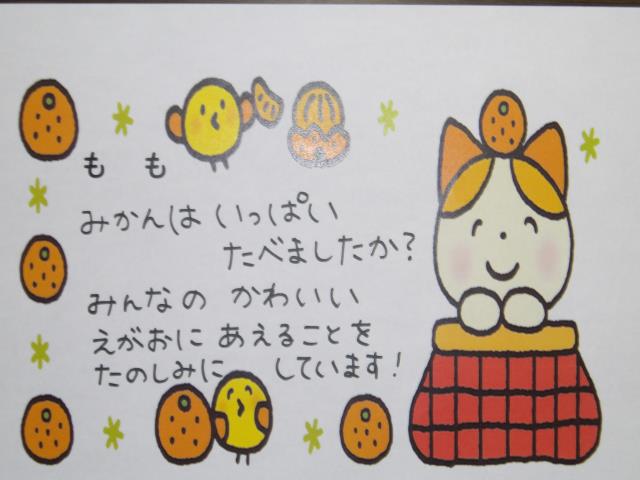 も も
みかんは いっぱい
たべましたか?
みんなの かわいい
えがおに あえることを
たのしみに しています!